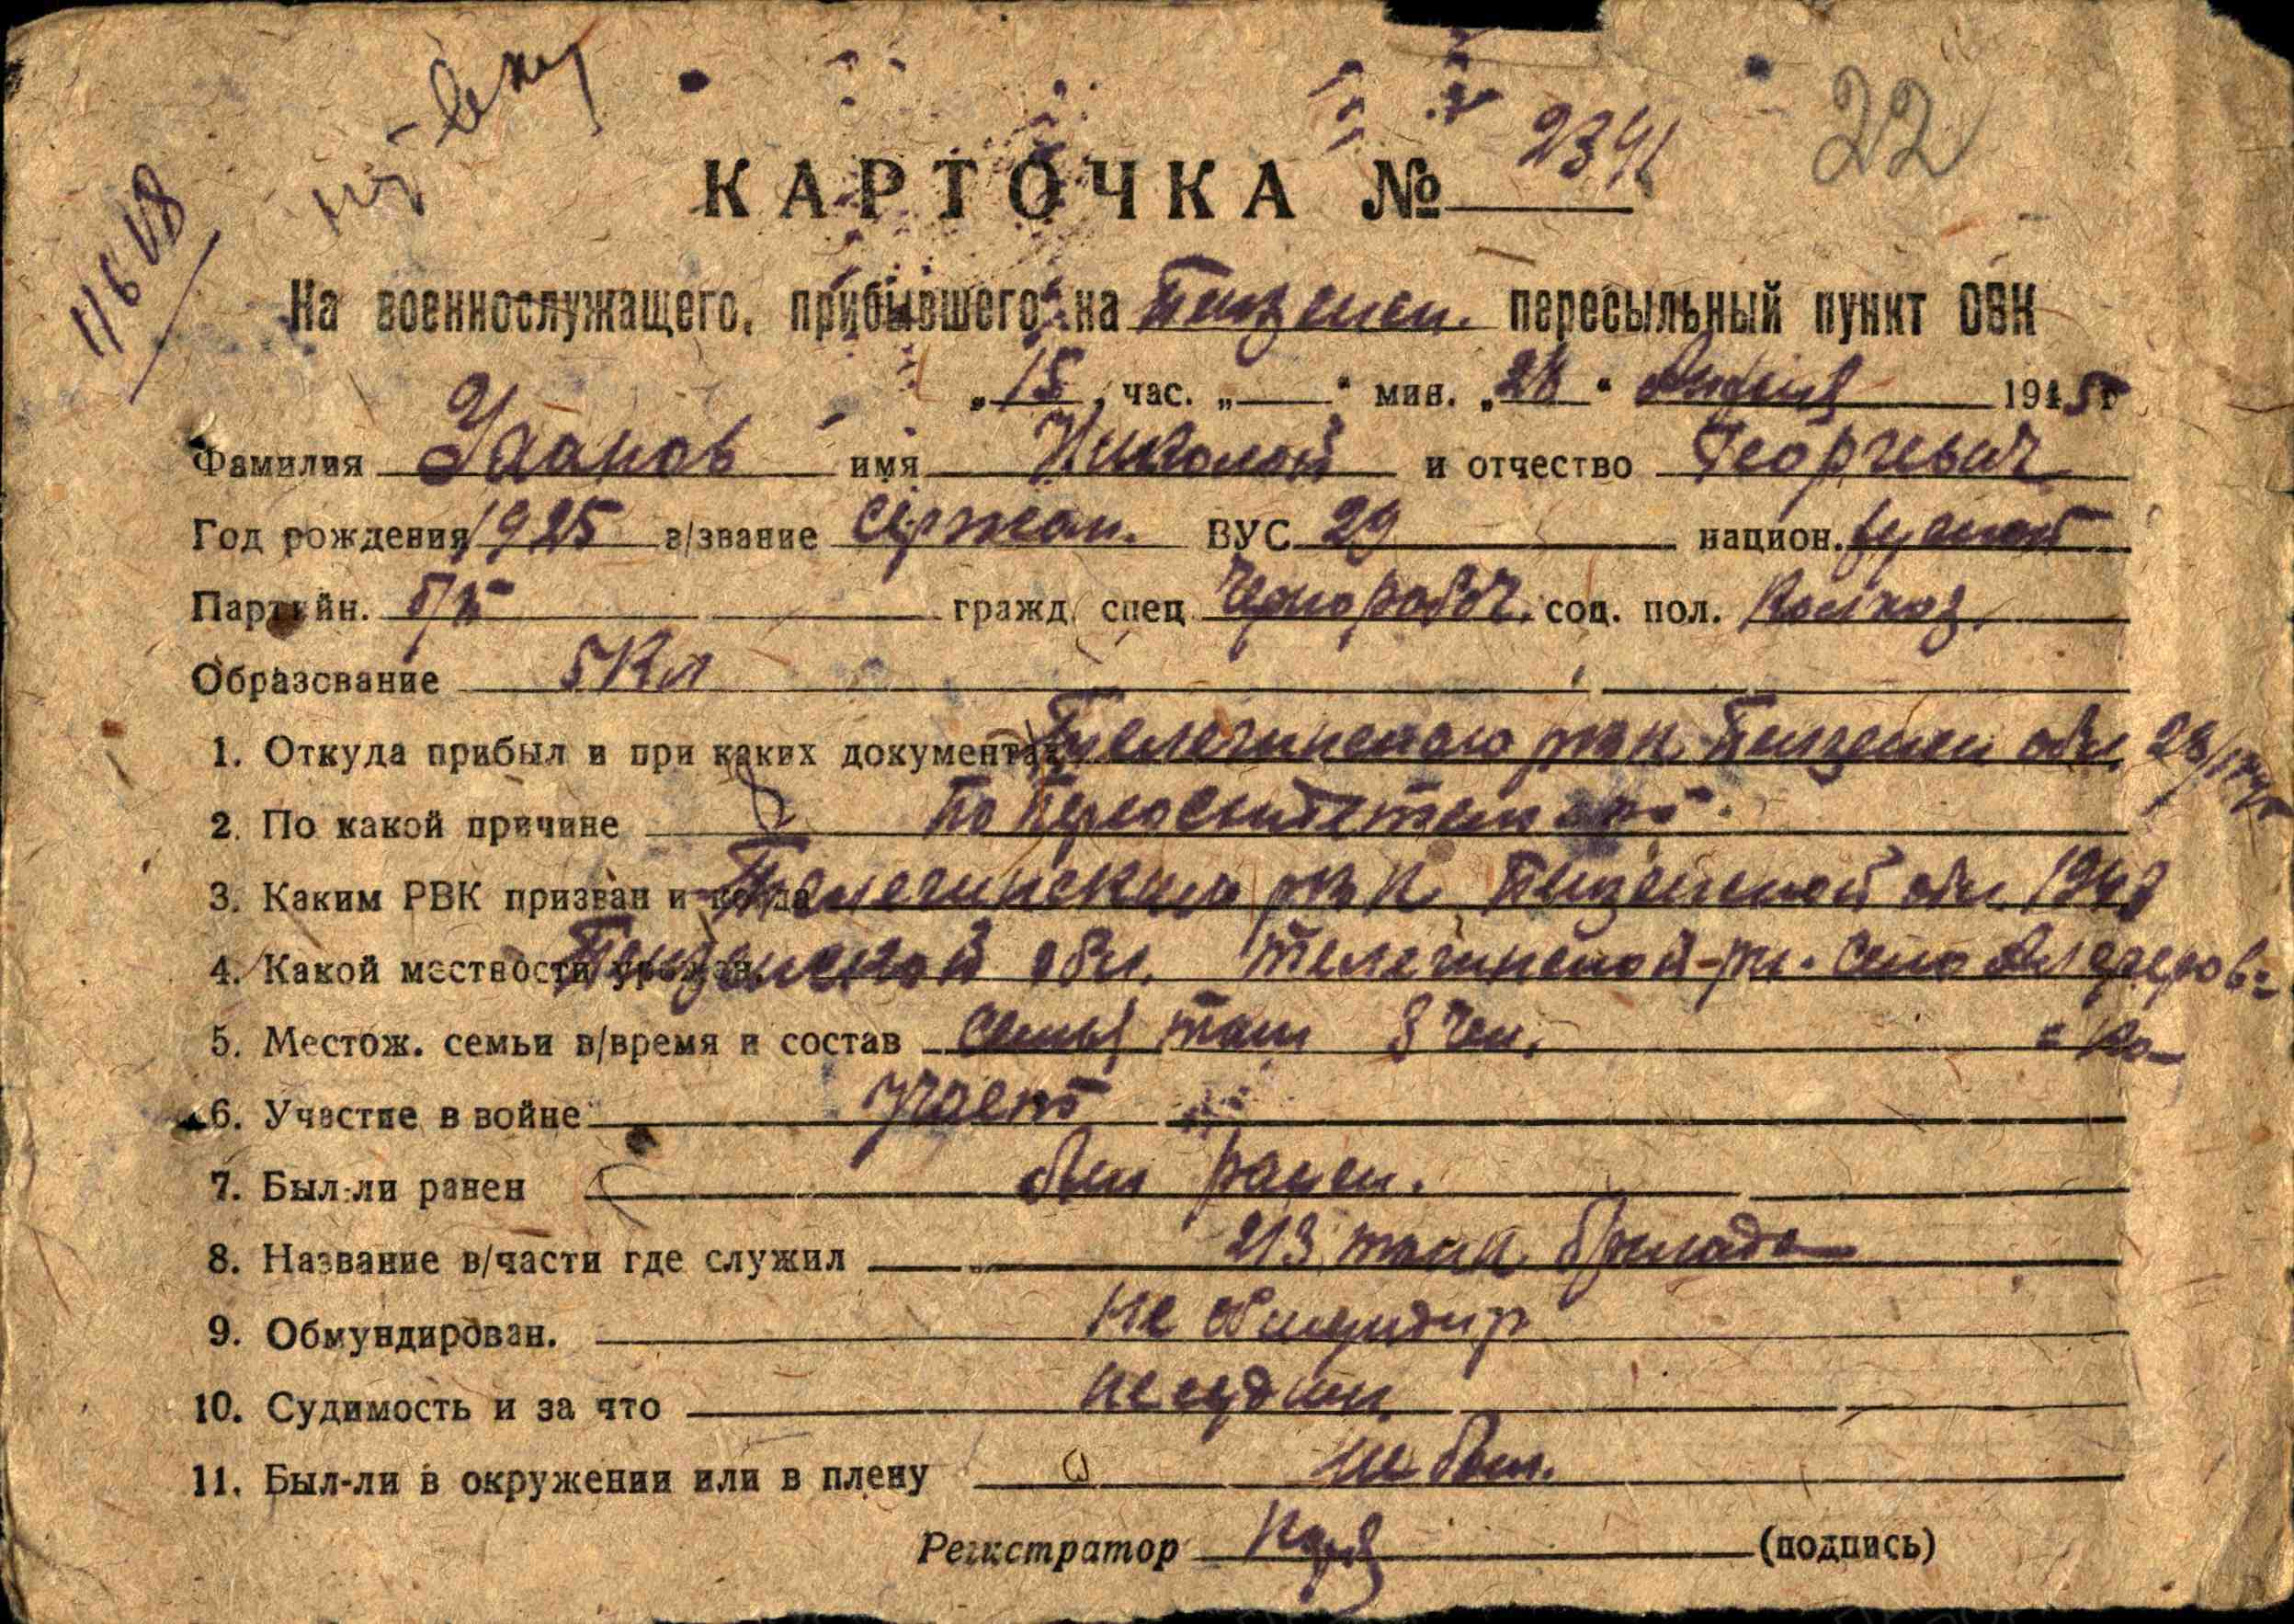 22
КАРТОЧКА № 2341
11618
На военнослужащего, прибывшего на Пензенск. пересыльный пункт ОВК
„15„ час. „—" мин. „28" Апреля 1945г
Фамилия Уланов имя Николай и отчество Георгиевич
Год рождения 1925 в/звание сержан. ВУС 29 национ. русский
Партийн. б/п гражд. спец Чернорабоч. соц. пол. Колхоз.
Образование 5 Кл
1. Откуда прибыл и при каких документах Телегинского рвк Пензенск обл.
2. По какой причине По
3. Каким РВК призван и когда Телегинским рвк Пензенской обл. 1943
4. Какой местности урожен. Пензенской обл. Телегинской р-н. село
5. Местож. семьи в/время и состав семья там 3 чел. =ка
6. Участие в войне участ
7. Был-ли ранен был ранен.
8. Название в/части где служил 213 танк. бригада
9. Обмундирован. не обмундир
10. Судимость и за что не судим
11. Был-ли в окружении или в плену не был.
Регистратор (подпись)